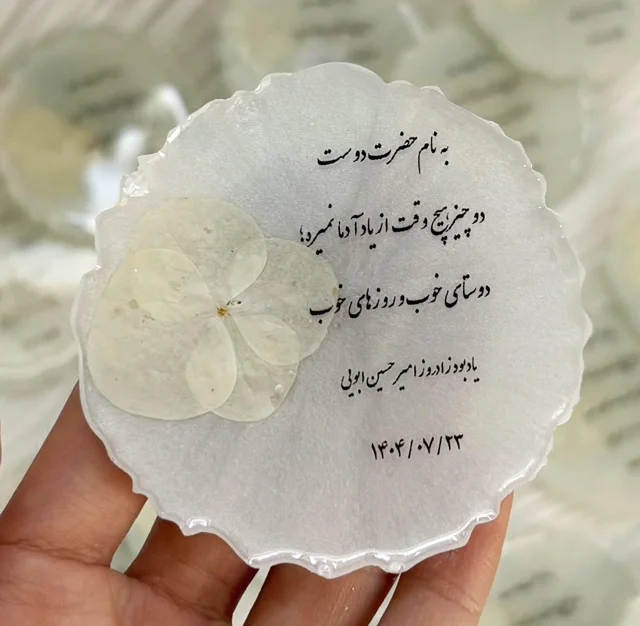 به نام حضرت دوست
دو چیز هیچ وقت از یاد آدما نمیره؛
دوستای خوب و روزهای خوب
یادبود زادروز امیر حسین ابویی
۱۴۰۴/۰۷/۲۳